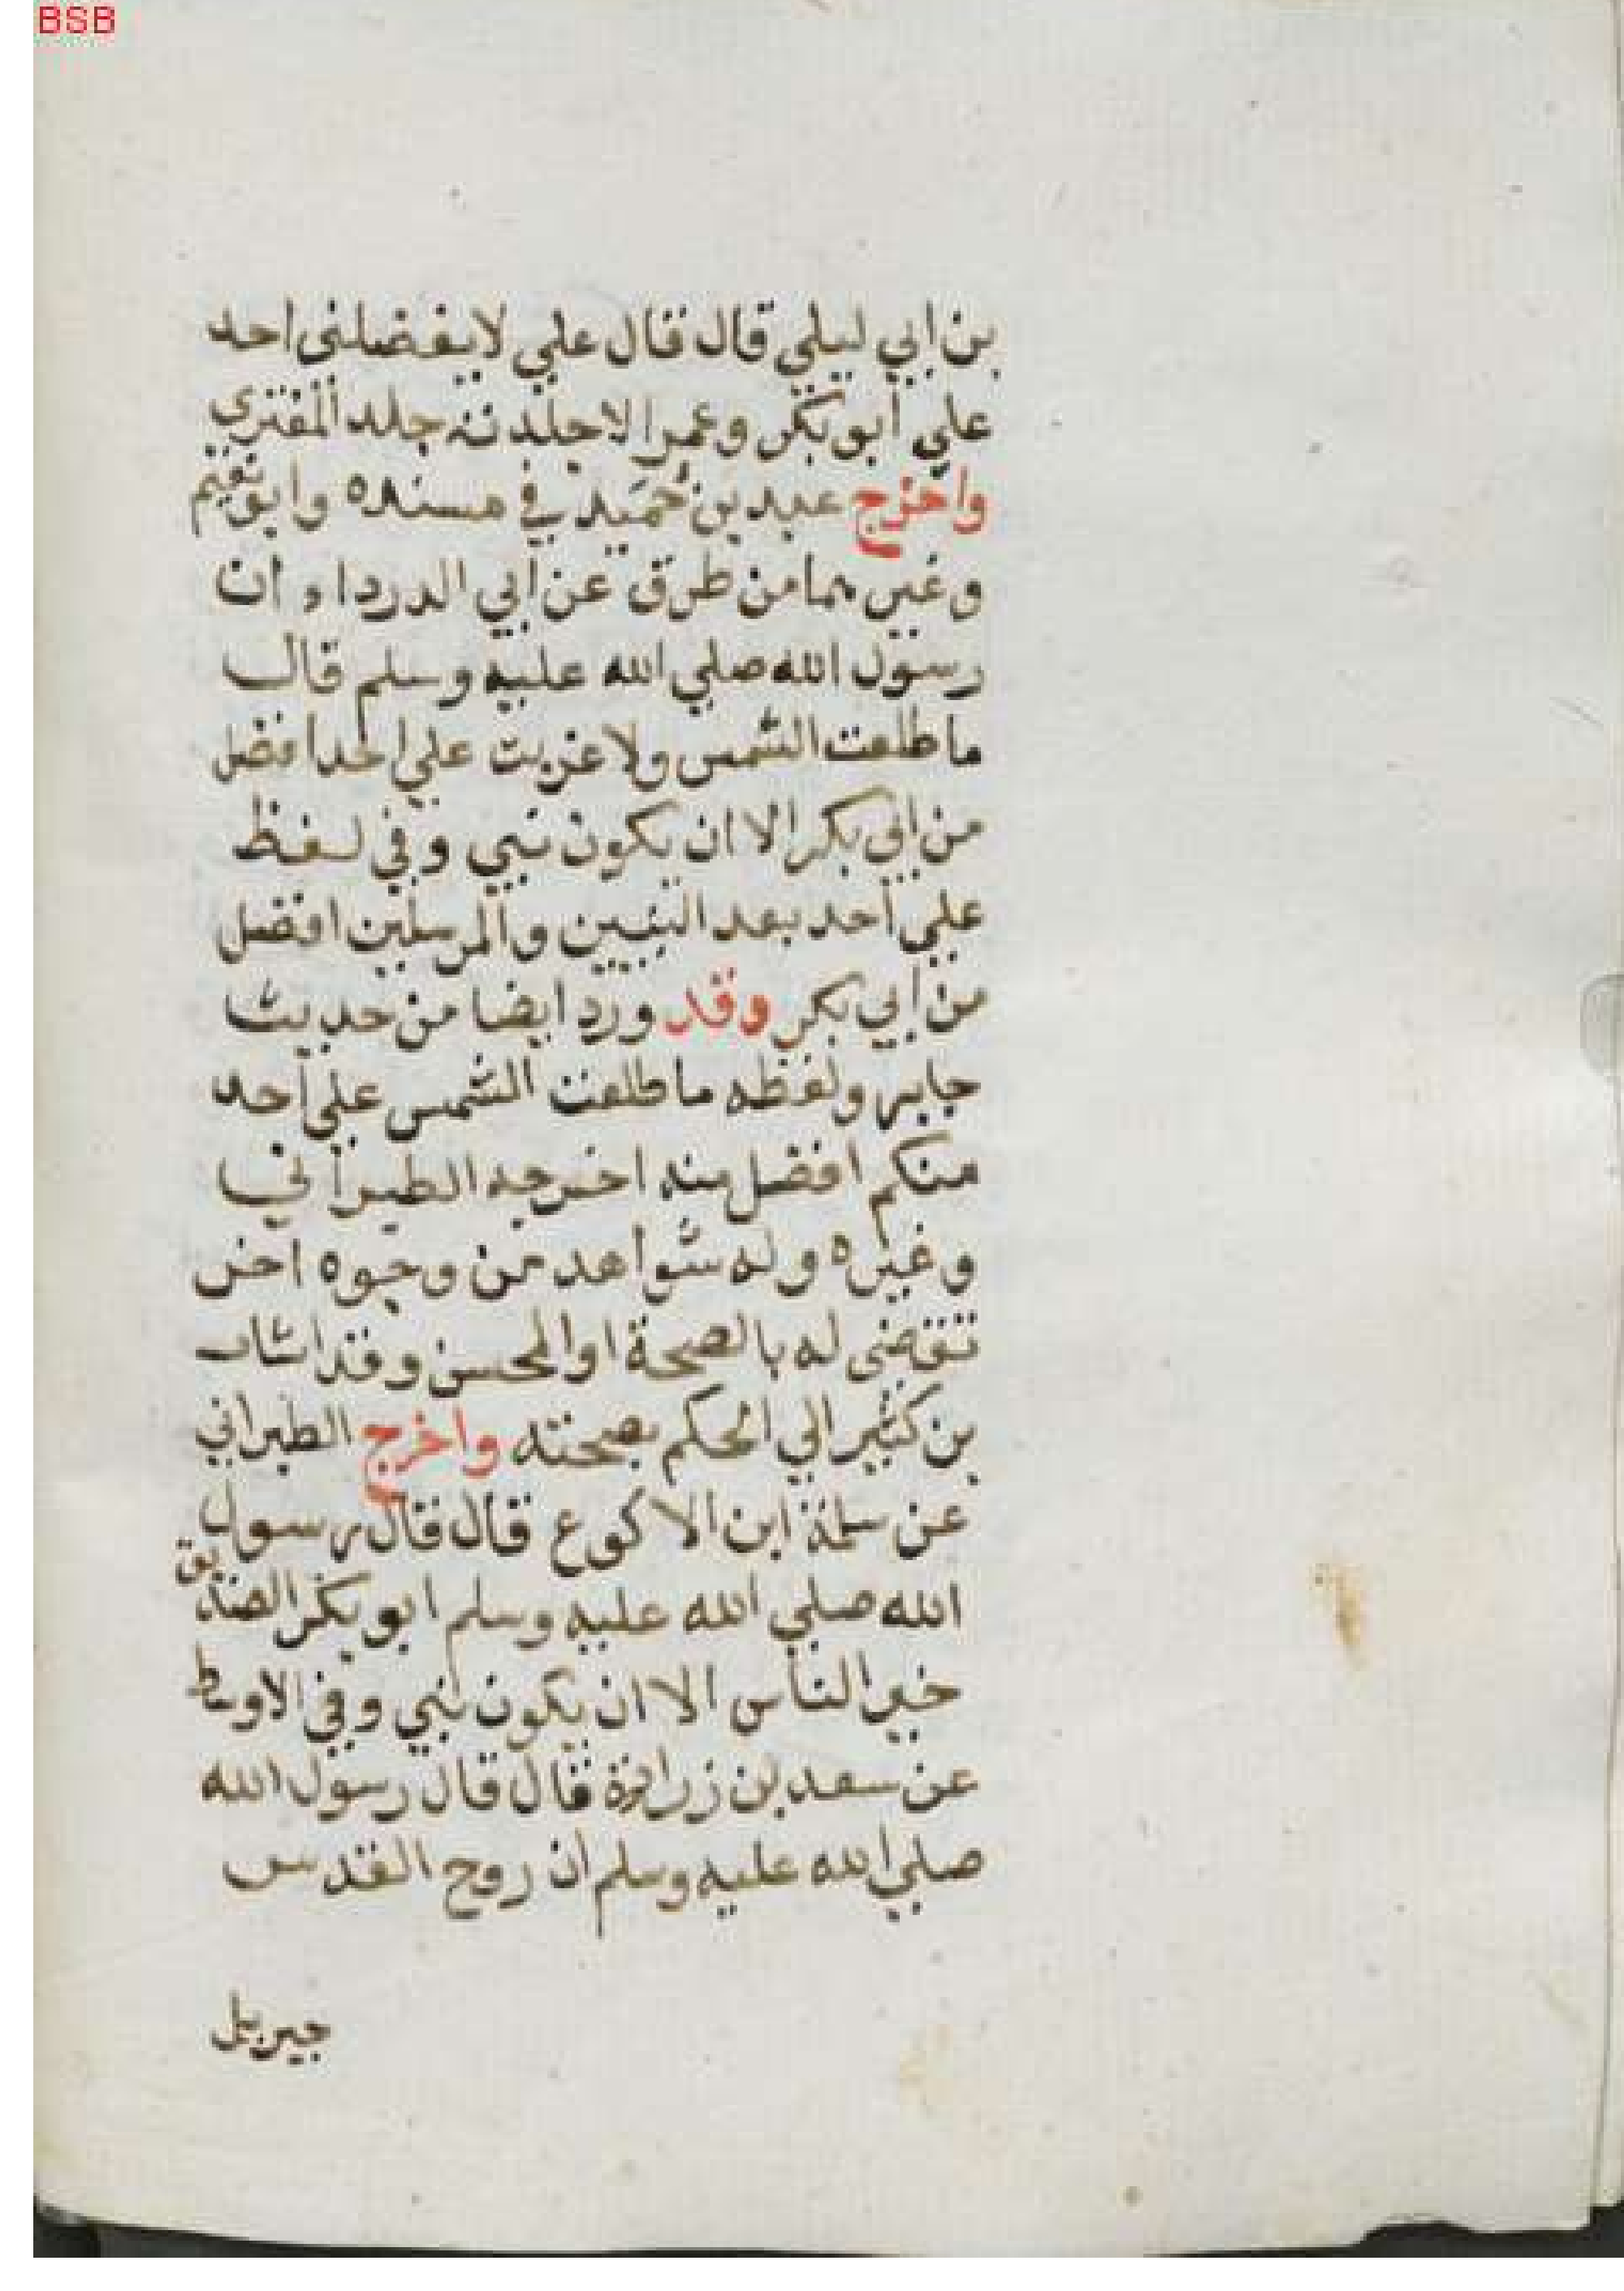 BSB
بن ابي ليلي قال قال علي لا يفضلني احد
علي ابو بكر وعمر الا جلدته جلد المفتري
واخرج عبد بن حميد في مسنده وابو نعيم
وغيرهما من طرق عن ابي الدرداء ان
رسول الله صلي الله عليه وسلم قال
ما طلعت الشمس ولا غربت علي احدا فضل
من ابي بكر الا ان يكون نبي وفي لفظ
علي احد بعد النبيين والمرسلين افضل
من ابي بكر وقد ورد ايضا من حديث
جابر ولفظه ما طلعت الشمس علي احد
منكم افضل منه اخرجه الطبراني
وغيره وله شواهد من وجوه اخر
تقتضي له بالصحة او الحسن وقد اشار
بن كثير الي الحكم بصحته واخرج الطبراني
عن سلمة ابن الاكوع قال قال رسول
الله صلي الله عليه وسلم ابو بكر الصديق
خير الناس الا ان يكون نبي وفي الاوسط
عن سعد بن زرارة قال قال رسول الله
صلي الله عليه وسلم ان روح القدس
جبريل